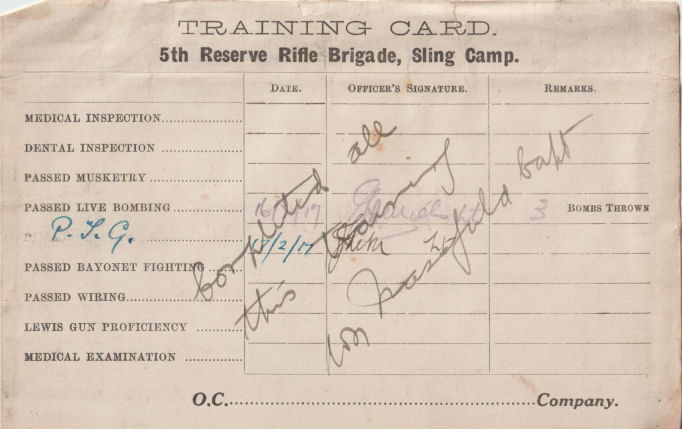 TRAINING CARD.
5th Reserve Rifle Brigade, Sling Camp.
DATE. OFFICER'S SIGNATURE. REMARKS.
MEDICAL INSPECTION
DENTAL INSPECTION
PASSED MUSKETRY
PASSED LIVE BOMBING 17 3 BOMBS THROWN
" P.S.G. /2/17
PASSED BAYONET FIGHTING
PASSED WIRING
LEWIS GUN PROFICIENCY
MEDICAL EXAMINATION
Completed all
this training
Capt
O.C. Company.